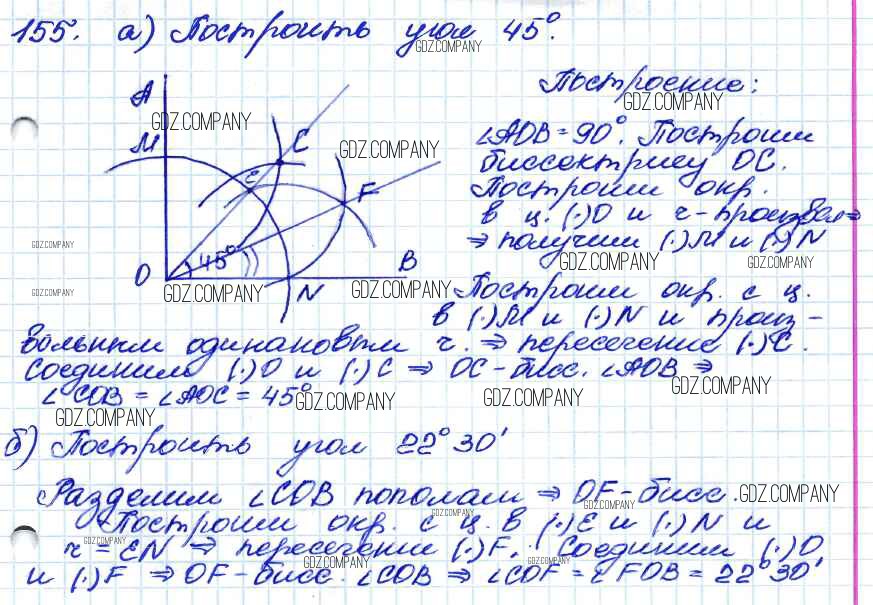 155. а) Построить угол 45°.
GDZ.COMPANY
Построение:
GDZ.COMPANY
A
GDZ.COMPANY
M
C
GDZ.COMPANY
∠AOB = 90°. Построим
биссектрису OC.
E
F
Построим окр.
в ц. (·)O и r - произвол ⇒
⇒ получим (·)M и (·)N
GDZ.COMPANY
GDZ.COMPANY
GDZ.COMPANY
O
45°
B
GDZ.COMPANY
N
GDZ.COMPANY
GDZ.COMPANY
GDZ.COMPANY
Построим окр. с ц.
в (·)M и (·)N и произ-
вольным одинаковым r. ⇒ пересечение (·)C.
Соединим (·)O и (·)C ⇒ OC - бисс. ∠AOB ⇒
GDZ.COMPANY
∠COB = ∠AOC = 45°
GDZ.COMPANY
GDZ.COMPANY
GDZ.COMPANY
б) Построить угол 22°30'
Разделим ∠COB пополам ⇒ OF - бисс.
GDZ.COMPANY
Построим окр. с ц. в (·)E и (·)N и
GDZ.COMPANY
r = EN ⇒ пересечение (·)F. Соединим (·)O
GDZ.COMPANY
GDZ.COMPANY
и (·)F ⇒ OF - бисс. ∠COB ⇒ ∠COF = ∠FOB = 22°30'
GDZ.COMPANY
GDZ.COMPANY